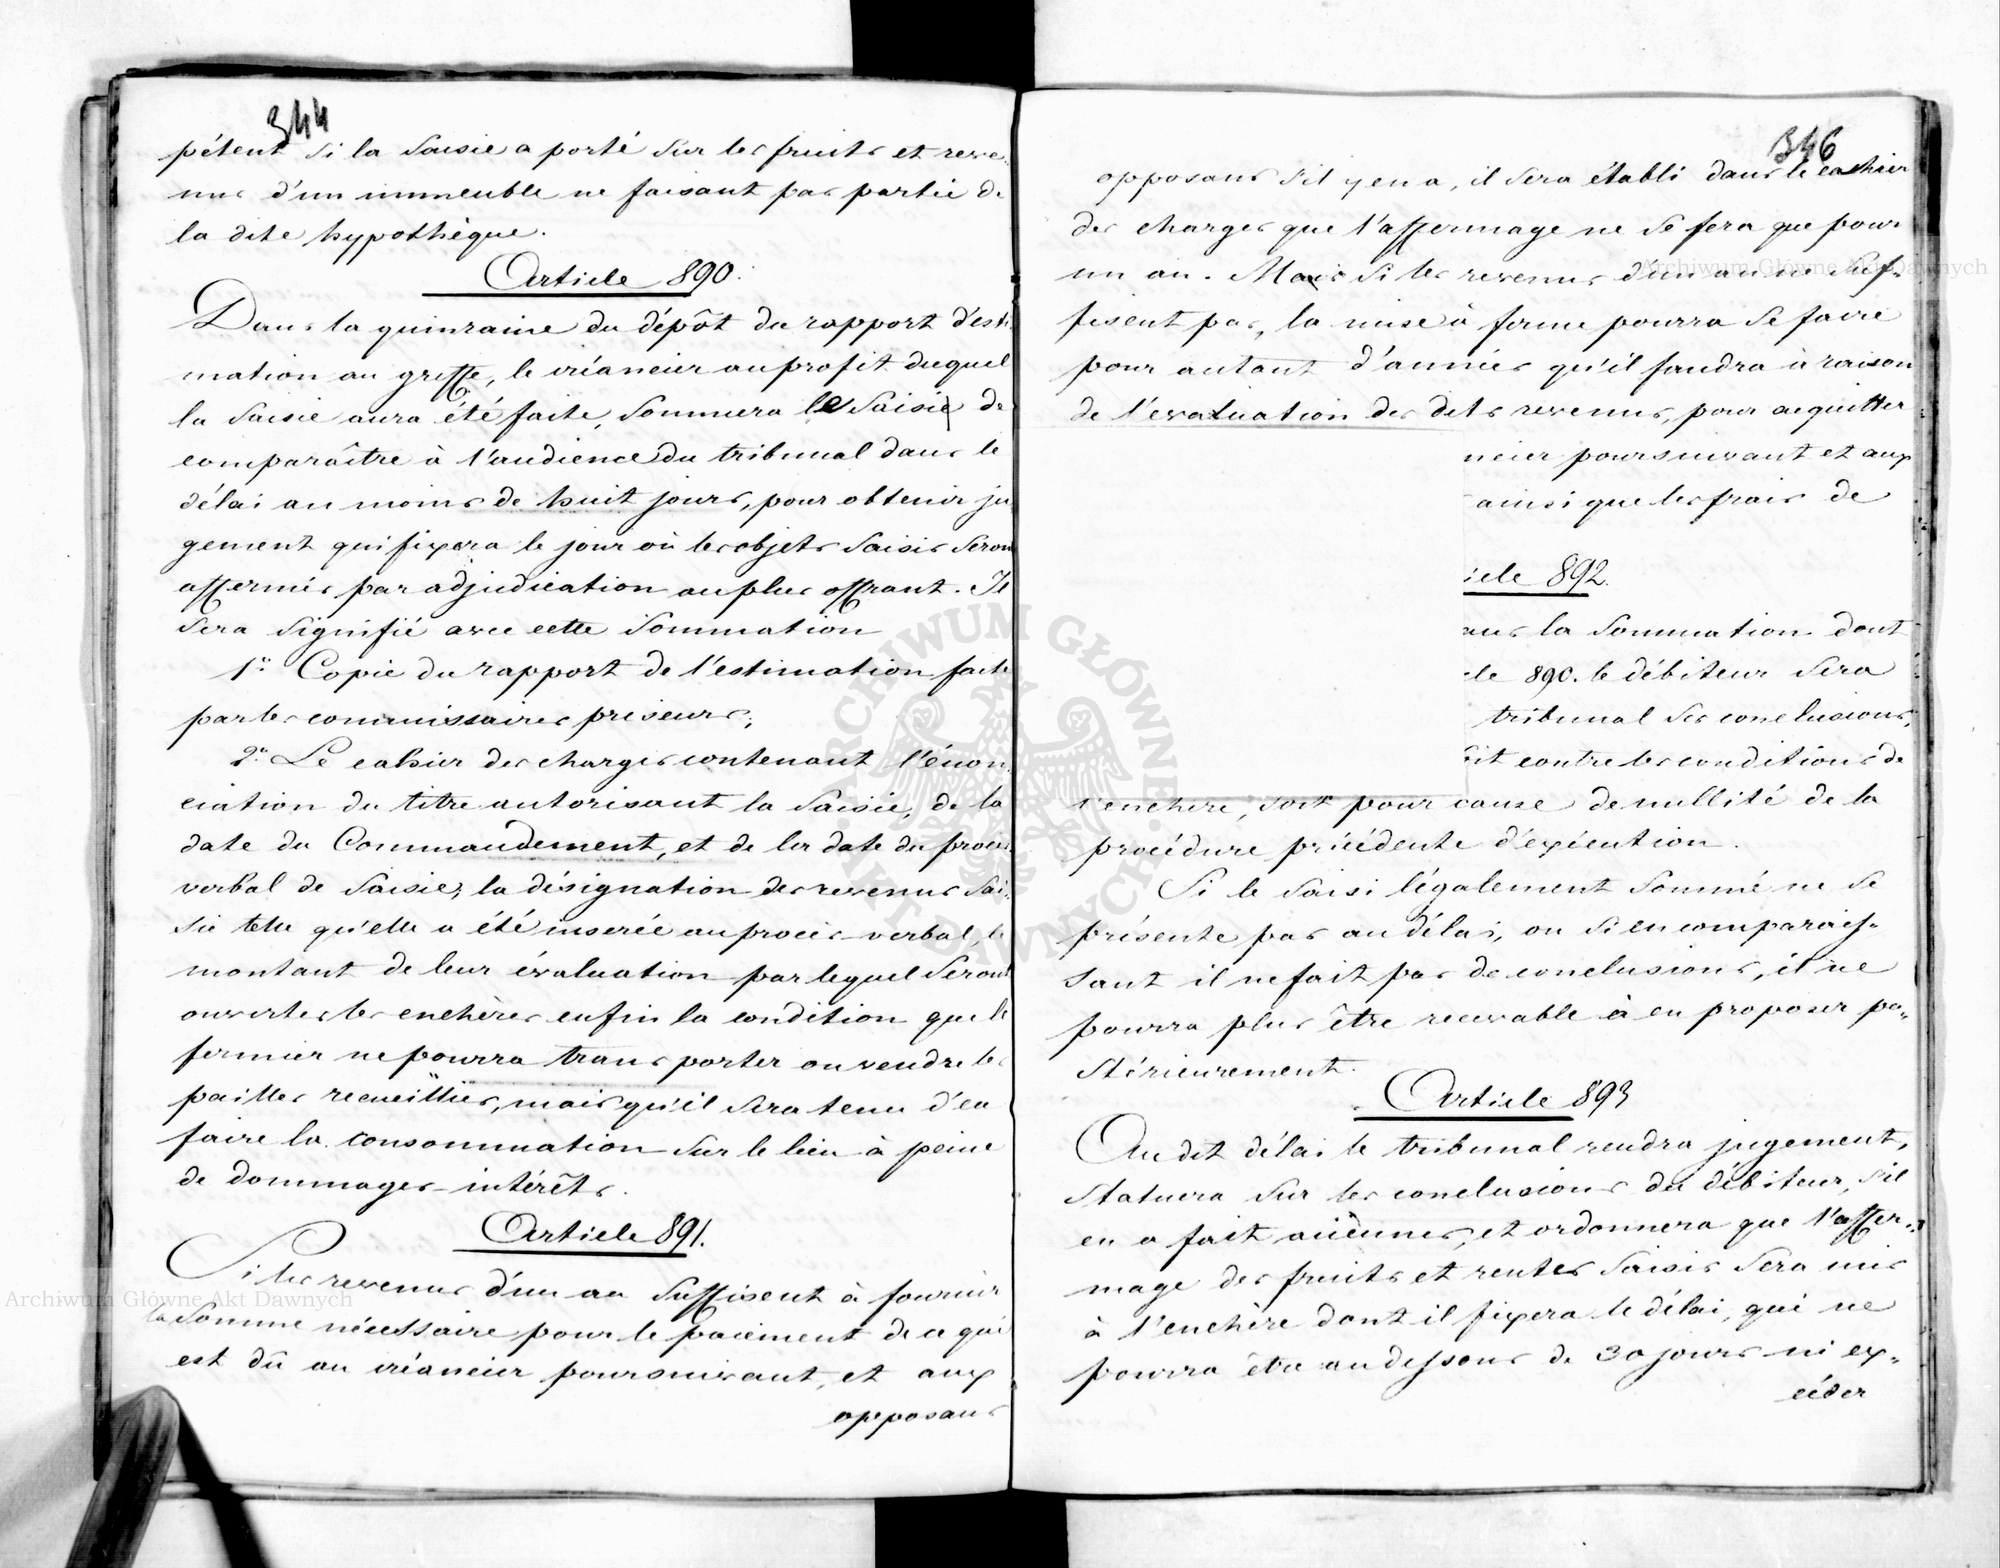 344
pétent si la saisie a porté sur les fruits et reve-
nus d'un immeuble ne faisant pas partie de
la dite hypothèque.
Article 890.
Dans la quinzaine du dépôt du rapport d'esti-
mation au greffe, le créancier au profit duquel
la saisie aura été faite, sommera le saisi de
comparaître à l'audience du tribunal dans le
délai au moins de huit jours, pour obtenir ju-
gement qui fixera le jour où les objets saisis seront
affermés par adjudication au plus offrant. Il
sera signifié avec cette sommation
1° Copie du rapport de l'estimation faite
par les commissaires priseurs;
2° Le cahier des charges contenant l'énon-
ciation du titre autorisant la saisie, de la
date du Commandement, et de la date du procès
verbal de saisie; la désignation des revenus sai-
sis telle qu'elle a été inserée au procès-verbal, le
montant de leur évaluation par lequel seront
ouvertes les enchères enfin la condition que le
fermier ne pourra transporter ou vendre les
pailles recueillies, mais qu'il sera tenu d'en
faire la consommation sur le lieu à peine
de dommages-intérêts.
Article 891.
Si les revenus d'un an suffisent à fournir
la somme nécessaire pour le paiement de ce qui
est dû au créancier poursuivant, et aux
opposans
346
opposans s'il y en a, il sera établi dans le cahier
des charges que l'affermage ne se fera que pour
un an. Mais si les revenus d'un an ne suf-
fisent pas, la mise à ferme pourra se faire
pour autant d'années qu'il faudra à raison
de l'evaluation des dits revenus, pour acquitter
ncier poursuivant et aux
ainsi que les frais de
icle 892.
ans la sommation dont
le 890. le débiteur sera
tribunal ses conclusions,
it contre les conditions de
l'enchère, soit pour cause de nullité de la
procédure précédente d'exécution.
Si le saisi légalement sommé ne se
présente pas au délai, ou si en comparais-
sant il ne fait pas de conclusions, il ne
pourra plus être recevable à en proposer po-
stérieurement.
Article 893
Au dit délai le tribunal rendra jugement,
statuera sur les conclusions du débiteur, s'il
en a fait aucunes, et ordonnera que l'affer-
mage des fruits et rentes saisis sera mis
à l'enchère dont il fixera le délai, qui ne
pourra être au dessous de 30 jours ni ex-
céder
Archiwum Główne Akt Dawnych
Archiwum Główne Akt Dawnych
ARCHIWUM GŁÓWNE AKT DAWNYCH